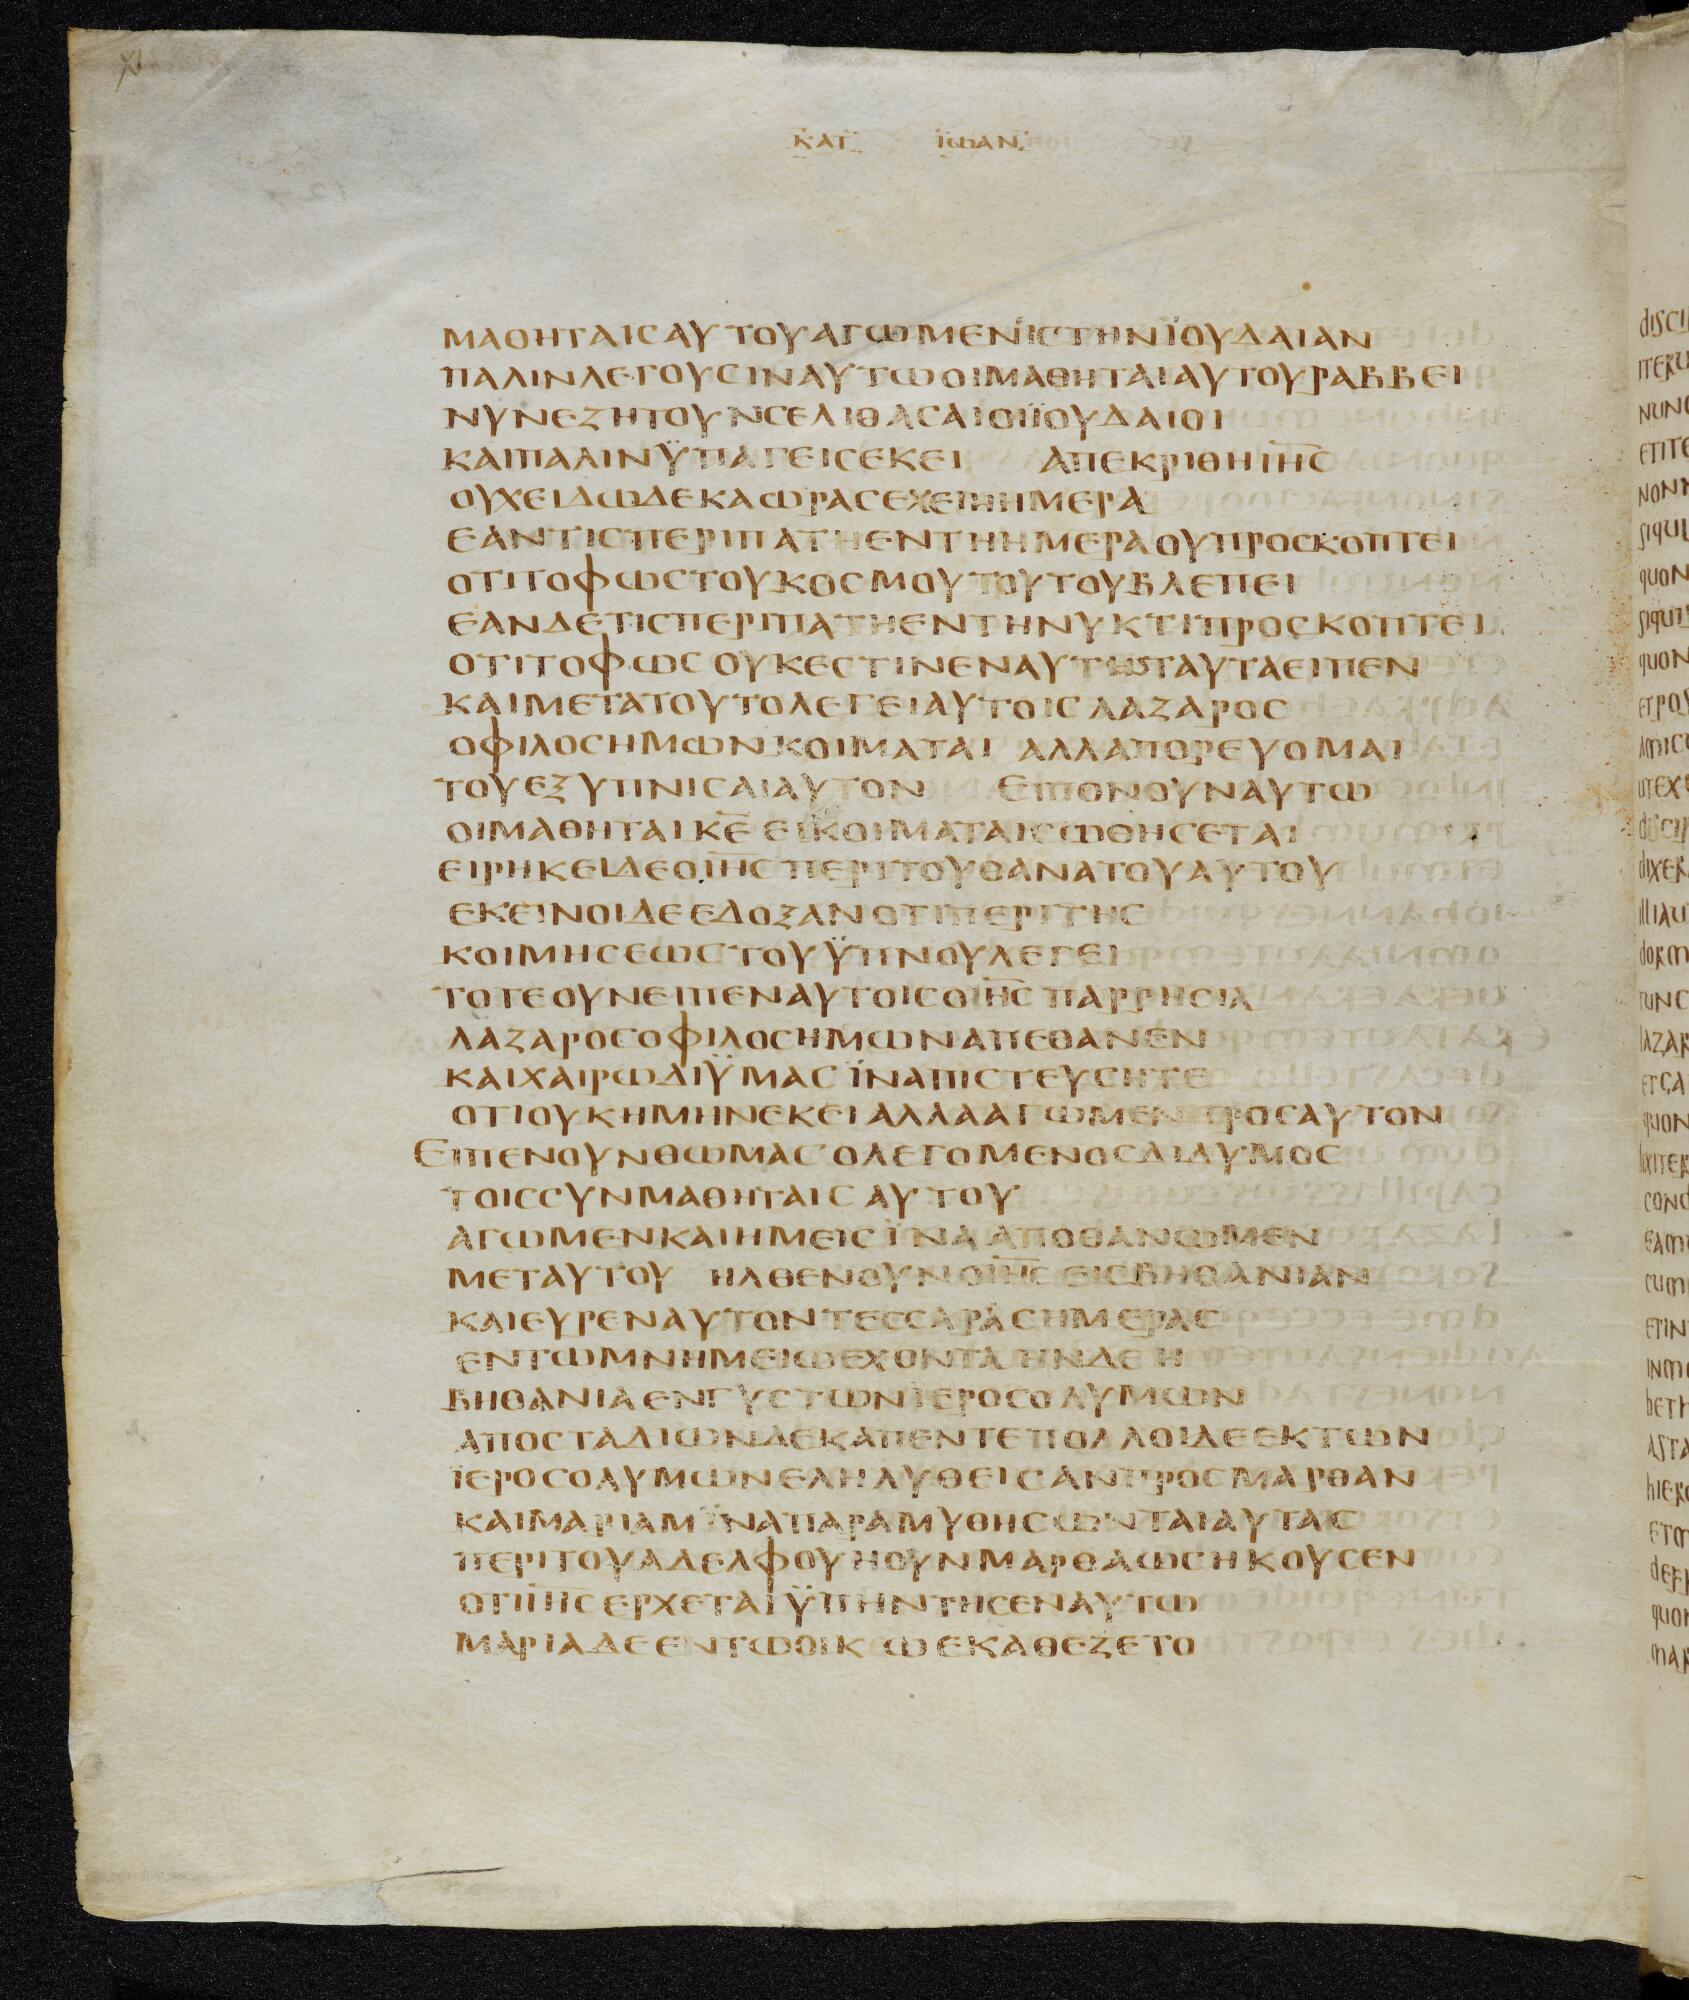 ΚΑΤ ΙΩΑΝ
ΜΑΘΗΤΑΙΣΑΥΤΟΥΑΓΩΜΕΝΙΣΤΗΝΪΟΥΔΑΙΑΝ
ΠΑΛΙΝΛΕΓΟΥΣΙΝΑΥΤΩΟΙΜΑΘΗΤΑΙΑΥΤΟΥΡΑΒΒΕΙ
ΝΥΝΕΖΗΤΟΥΝΣΕΛΙΘΑΣΑΙΟΙΪΟΥΔΑΙΟΙ
ΚΑΙΠΑΛΙΝΫΠΑΓΕΙΣΕΚΕΙ ΑΠΕΚΡΙΘΗΙΗΣ
ΟΥΧΕΙΔΩΔΕΚΑΩΡΑΣΕΧΕΙΗΗΜΕΡΑ
ΕΑΝΤΙΣΠΕΡΙΠΑΤΗΕΝΤΗΗΜΕΡΑΟΥΠΡΟΣΚΟΠΤΕΙ
ΟΤΙΤΟΦΩΣΤΟΥΚΟΣΜΟΥΤΟΥΤΟΥΒΛΕΠΕΙ
ΕΑΝΔΕΤΙΣΠΕΡΙΠΑΤΗΕΝΤΗΝΥΚΤΙΠΡΟΣΚΟΠΤΕΙ
ΟΤΙΤΟΦΩΣΟΥΚΕΣΤΙΝΕΝΑΥΤΗΤΑΥΤΑΕΙΠΕΝ
ΚΑΙΜΕΤΑΤΟΥΤΟΛΕΓΕΙΑΥΤΟΙΣΛΑΖΑΡΟΣ
ΟΦΙΛΟΣΗΜΩΝΚΟΙΜΑΤΑΙ ΑΛΛΑΠΟΡΕΥΟΜΑΙ
ΤΟΥΕΞΥΠΝΙΣΑΙΑΥΤΟΝ ΕΙΠΟΝΟΥΝΑΥΤΩ
ΟΙΜΑΘΗΤΑΙΚΕ ΕΙΚΟΙΜΑΤΑΙΣΩΘΗΣΕΤΑΙ
ΕΙΡΗΚΕΙΔΕΟΙΗΣΠΕΡΙΤΟΥΘΑΝΑΤΟΥΑΥΤΟΥ
ΕΚΕΙΝΟΙΔΕΕΔΟΞΑΝΟΤΙΠΕΡΙΤΗΣ
ΚΟΙΜΗΣΕΩΣΤΟΥΫΠΝΟΥΛΕΓΕΙ
ΤΟΤΕΟΥΝΕΙΠΕΝΑΥΤΟΙΣΟΙΗΣΠΑΡΡΗΣΙΑ
ΛΑΖΑΡΟΣΟΦΙΛΟΣΗΜΩΝΑΠΕΘΑΝΕΝ
ΚΑΙΧΑΙΡΩΔΙΫΜΑΣΪΝΑΠΙΣΤΕΥΣΗΤΕ
ΟΤΙΟΥΚΗΜΗΝΕΚΕΙΑΛΛΑΑΓΩΜΕΝΠΡΟΣΑΥΤΟΝ
ΕΙΠΕΝΟΥΝΘΩΜΑΣΟΛΕΓΟΜΕΝΟΣΔΙΔΥΜΟΣ
ΤΟΙΣΣΥΝΜΑΘΗΤΑΙΣΑΥΤΟΥ
ΑΓΩΜΕΝΚΑΙΗΜΕΙΣΪΝΑΑΠΟΘΑΝΩΜΕΝ
ΜΕΤΑΥΤΟΥ ΗΛΘΕΝΟΥΝΟΙΗΣΕΙΣΒΗΘΑΝΙΑΝ
ΚΑΙΕΥΡΕΝΑΥΤΟΝΤΕΣΣΑΡΑΣΗΜΕΡΑΣ
ΕΝΤΩΜΝΗΜΕΙΩΕΧΟΝΤΑ ΗΝΔΕ Η
ΒΗΘΑΝΙΑΕΝΓΥΣΤΩΝΪΕΡΟΣΟΛΥΜΩΝ
ΑΠΟΣΤΑΔΙΩΝΔΕΚΑΠΕΝΤΕΠΟΛΛΟΙΔΕΕΚΤΩΝ
ΪΕΡΟΣΟΛΥΜΩΝΕΛΗΛΥΘΕΙΣΑΝΠΡΟΣΜΑΡΘΑΝ
ΚΑΙΜΑΡΙΑΜΪΝΑΠΑΡΑΜΥΘΗΣΩΝΤΑΙΑΥΤΑΣ
ΠΕΡΙΤΟΥΑΔΕΛΦΟΥΗΟΥΝΜΑΡΘΑΩΣΗΚΟΥΣΕΝ
ΟΤΙΙΗΣΕΡΧΕΤΑΙΫΠΗΝΤΗΣΕΝΑΥΤΩ
ΜΑΡΙΑΔΕΕΝΤΩΟΙΚΩΕΚΑΘΕΖΕΤΟ